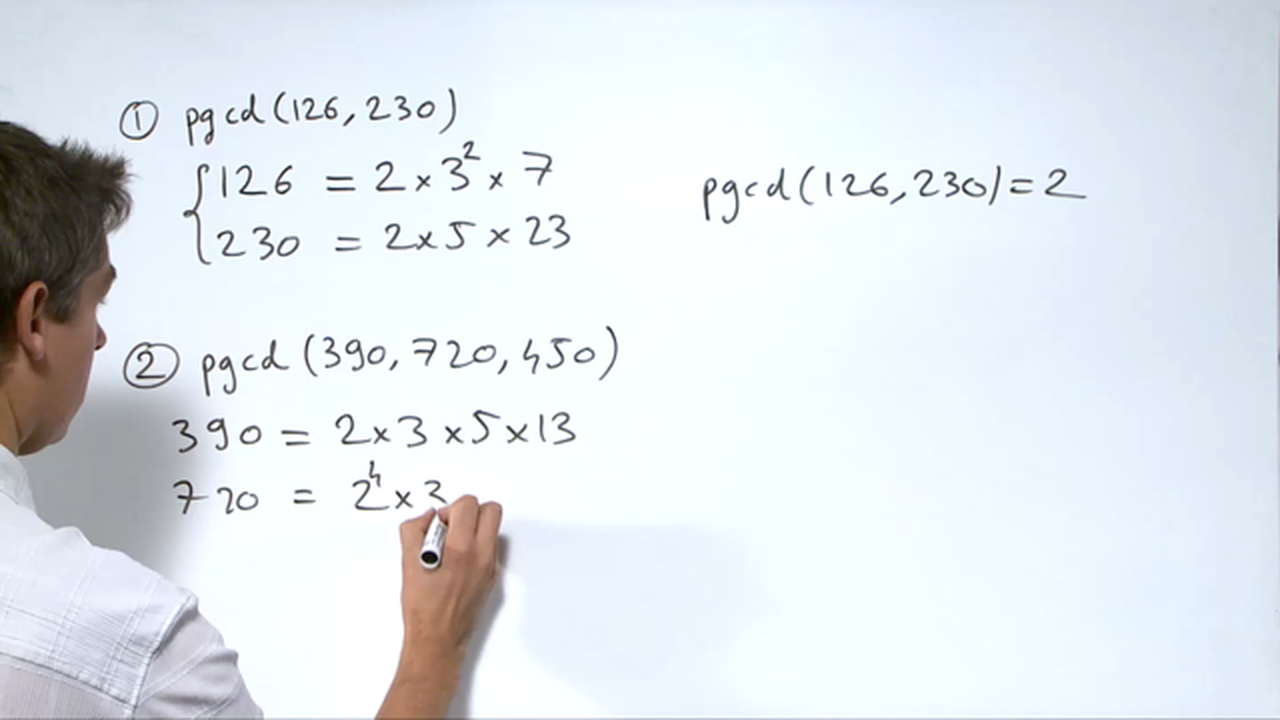 ① pgcd(126,230)
126 = 2 × 3² × 7
230 = 2 × 5 × 23
pgcd(126,230) = 2
② pgcd(390,720,450)
390 = 2 × 3 × 5 × 13
720 = 2⁴ × 3